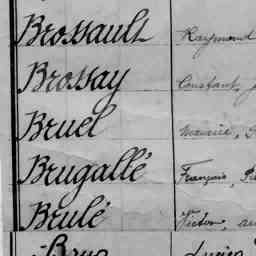 Brossault Raymond
Brossay Constant,
Bruel Maurice,
Brugallé François,
Brulé Victor,
Brun Lucien